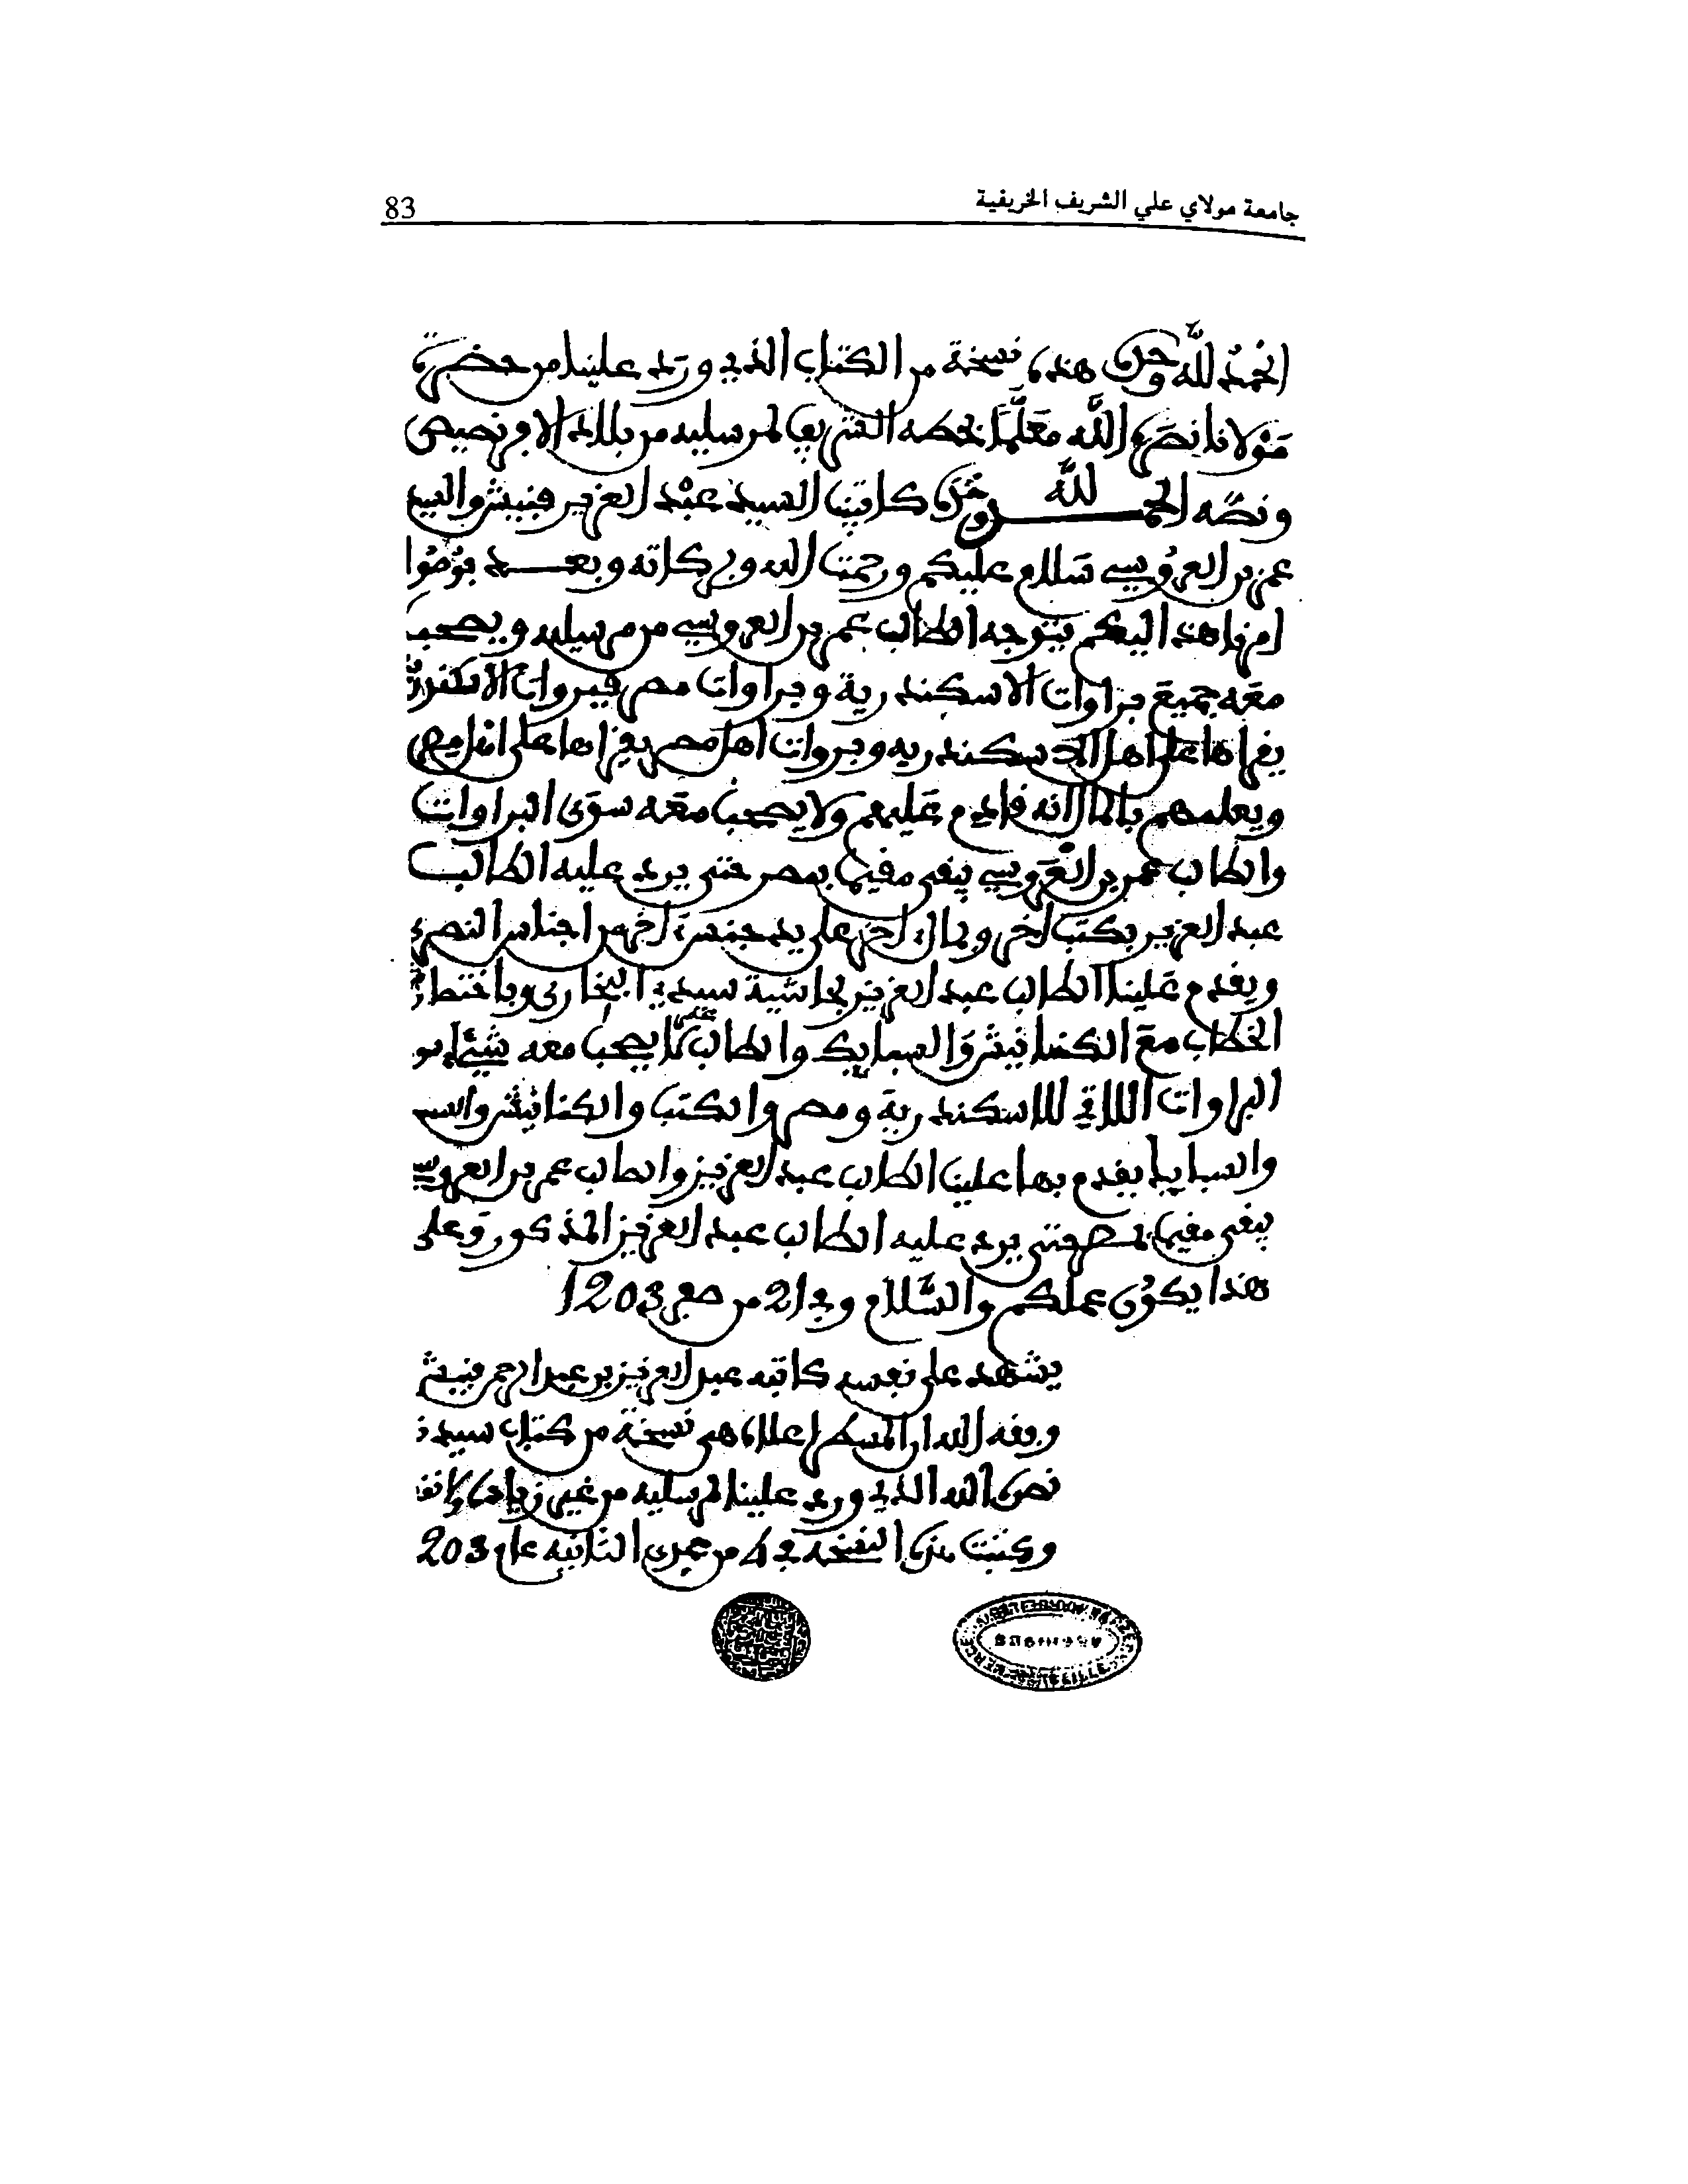 جامعة مولاي علي الشريف الخريفية 83
الحمد لله وحده هذه نسخة من الكتاب الذي ورد علينا من حضرة
مولانا نصره الله معلما بخطه الشريف لمرسليه من بلاد الافرنصيص
ونصه الحمد لله وحده كاتبنا السيد عبد العزيز فنيش والسيد
عمر بن العروسي سلام عليكم ورحمت الله وبركاته وبعد بوصول
امرنا هذا اليكم يتوجه الطالب عمر بن العروسي من مرسيليه ويصحب
معه جميع براوات الاسكندرية وبراوات مصر فبروات الاسكندرية
يقراها على اهل الاسكندريه وبروات اهل مصر يقراها على اهل مصر
ويعلمهم بالمال انه قادم عليهم ولا يصحب معه سوى البراوات
والطالب عمر بن العروسي يبقى مقيما بمصر حتى يرد عليه الطالب
عبد العزيز بكتب اخر وبمال اخر على يد جنس اخر من اجناس النصرى
ويقدم علينا الطالب عبد العزيز بحاشية سيدي البخاري وباختصار
الخطاب مع الكنانيش والسبايك والطالب عمر لا يصحب معه شيئا سوى
البراوات اللاتي للاسكندرية ومصر والكتب والكنانيش والسبـ
والسبايك يقدم بها علينا الطالب عبد العزيز والطالب عمر بن العروسي
يبقى مقيما بمصر حتى يرد عليه الطالب عبد العزيز المذكور وعلى
هذا يكون عملكم والسلام وفي 21 من صفر 1203
يشهد على نفسه كاتبه عبد العزيز بن عبد الرحمن فنيش
وفقه الله ان المسطر اعلاه هي نسخة من كتاب سيدنا
نصره الله الذي ورد علينا لمرسليه من غير زيادة ولا نقـ
وكتبت هذه النسخه في 4 من جمدى الثانيه عام 203